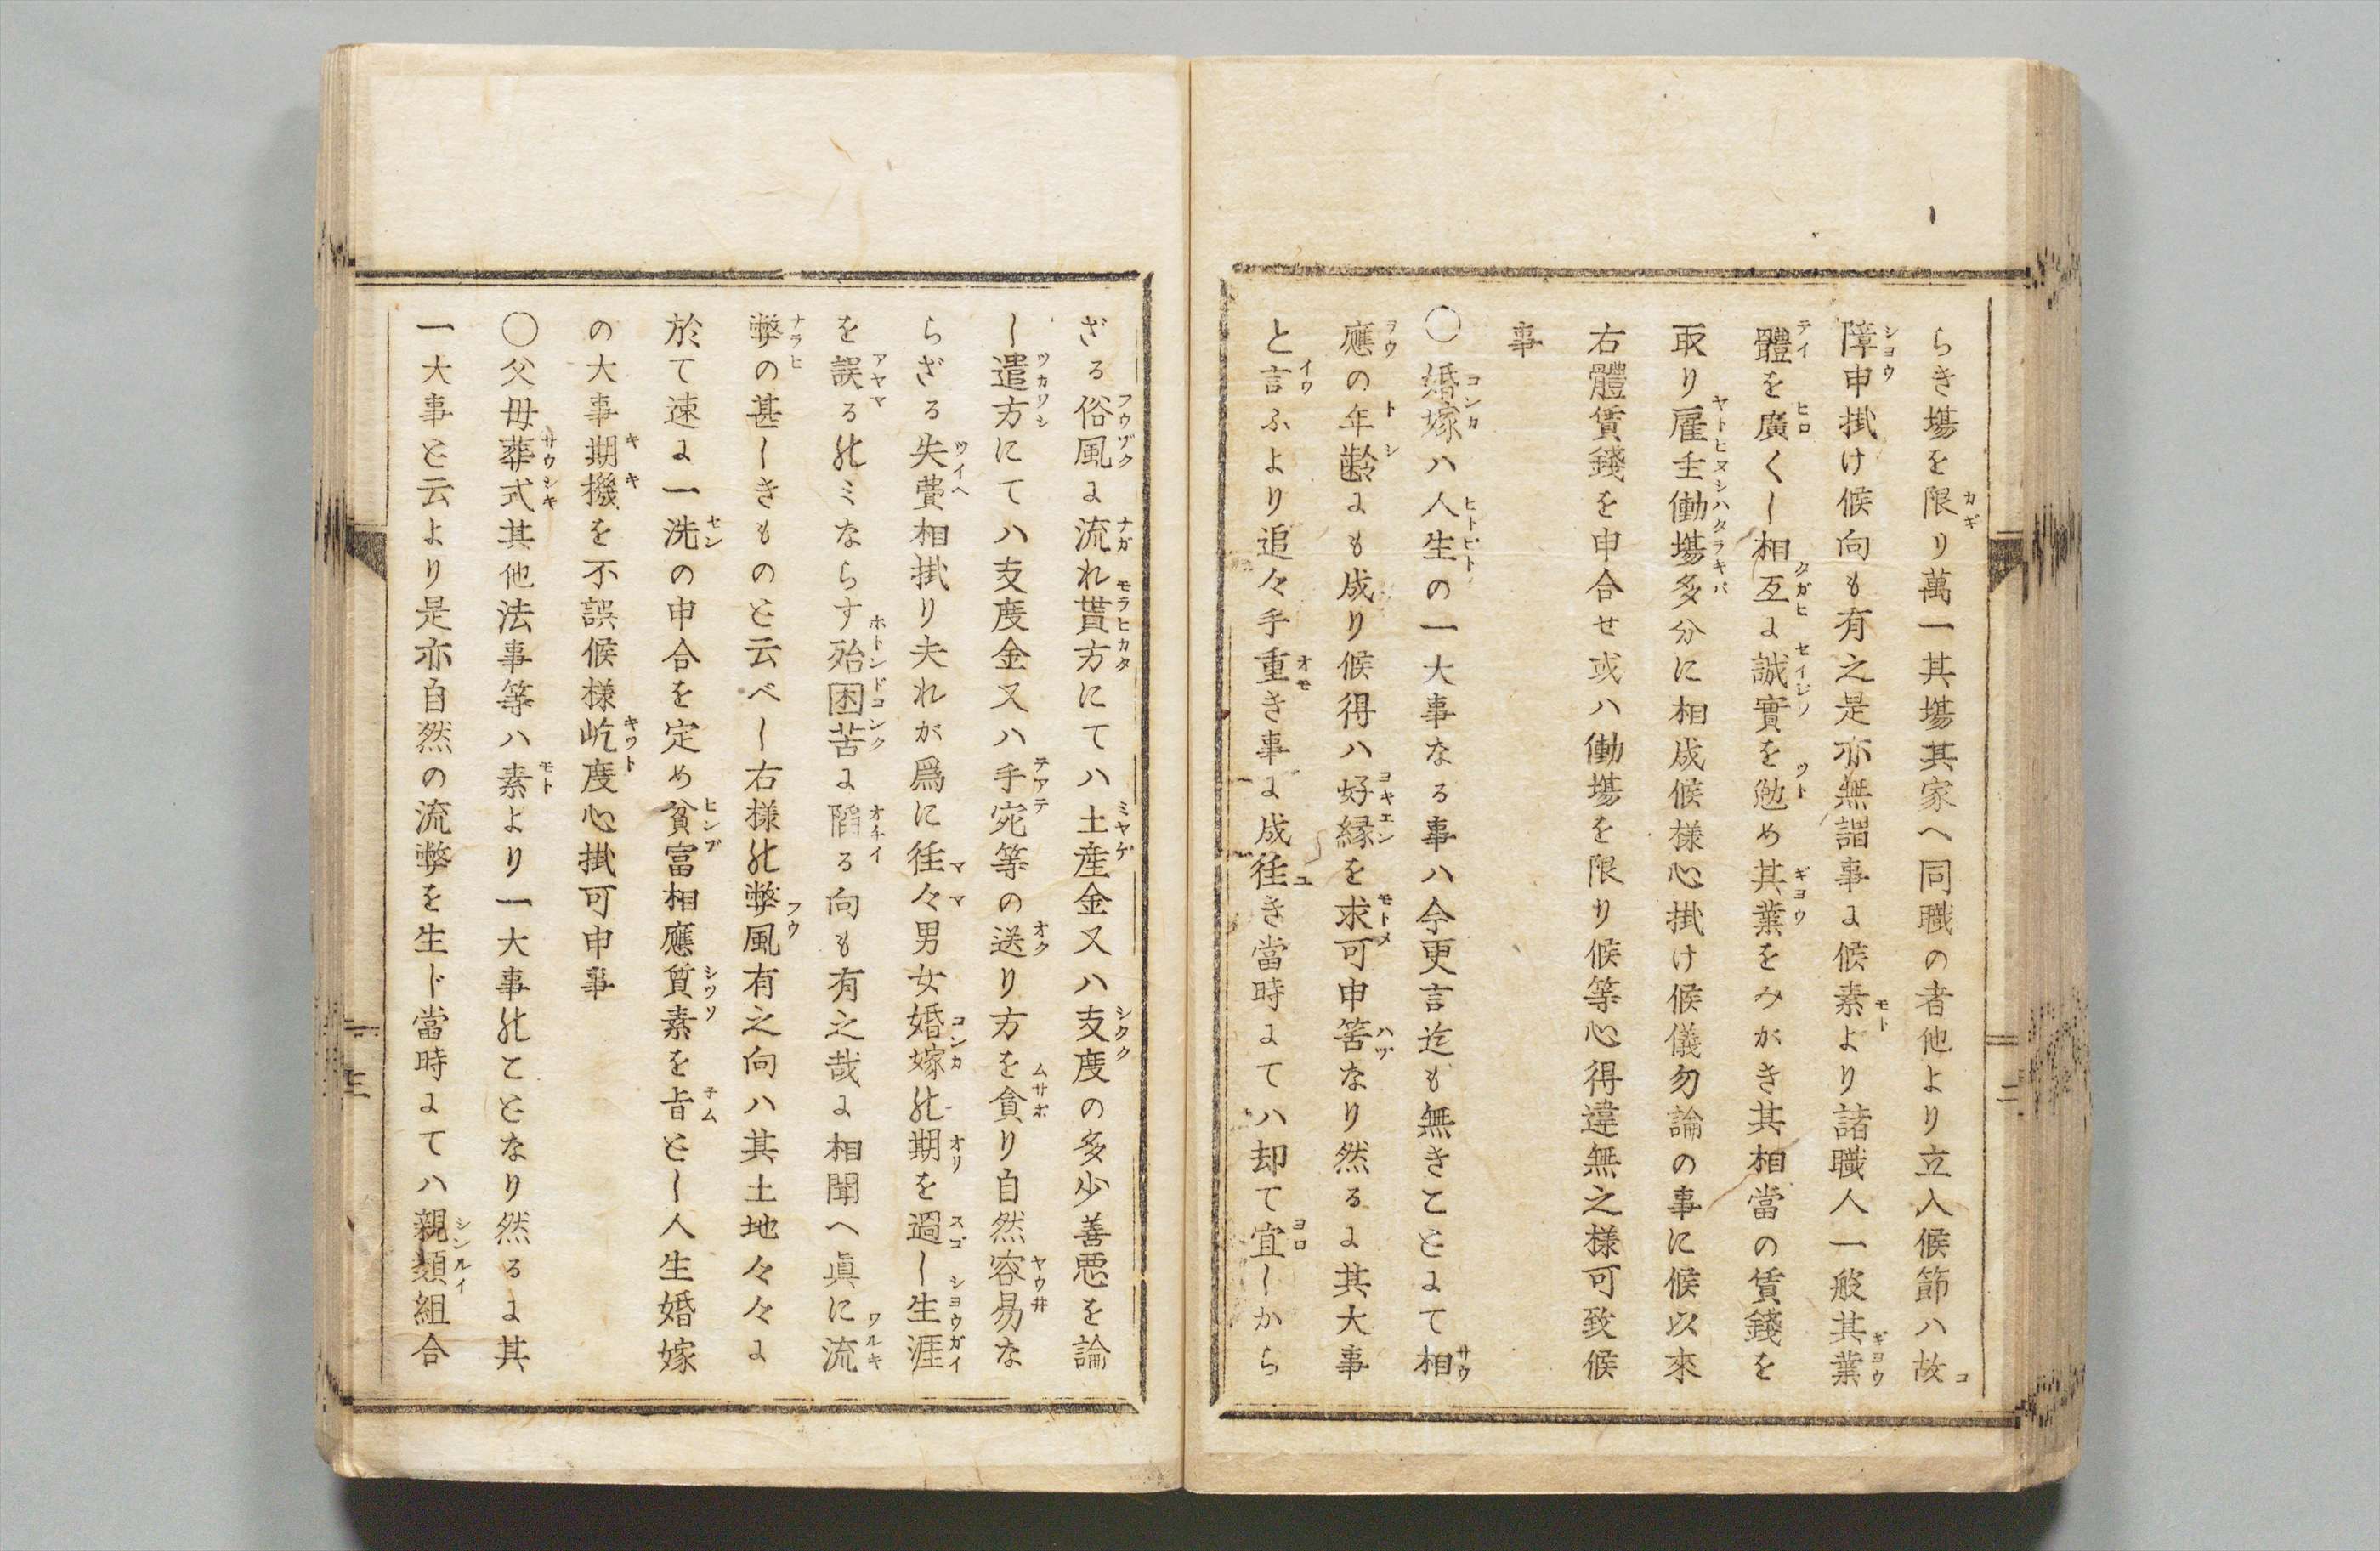 らき塲を限り萬一其塲其家へ同職の者他より立入候節ハ故
障申掛け候向も有之是亦無謂事に候素より諸職人一般其業
體を廣くし相互に誠實を勉め其業をみがき其相當の賃錢を
取り雇主働塲多分に相成候様心掛け候儀勿論の事に候以來
右體賃錢を申合せ或ハ働塲を限り候等心得違無之様可致候
事
〇婚嫁ハ人生の一大事なる事ハ今更言迄も無きことにて相
應の年齢にも成り候得ハ好縁を求可申筈なり然るに其大事
と言ふより追々手重き事に成徃き當時にてハ却て宜しから
ざる俗風に流れ貰方にてハ土産金又ハ支度の多少善悪を論
し遣方にてハ支度金又ハ手宛等の送り方を貪り自然容易な
らざる失費相掛り夫れが爲に徃々男女婚嫁の期を過し生涯
を誤るのミならす殆困苦に陷る向も有之哉に相聞へ眞に流
弊の甚しきものと云べし右様の弊風有之向ハ其土地々々に
於て速に一洗の申合を定め貧富相應質素を旨とし人生婚嫁
の大事期機を不誤候様屹度心掛可申事
〇父母葬式其他法事等ハ素より一大事のことなり然るに其
一大事と云より是亦自然の流弊を生ド當時にてハ親類組合
二
三